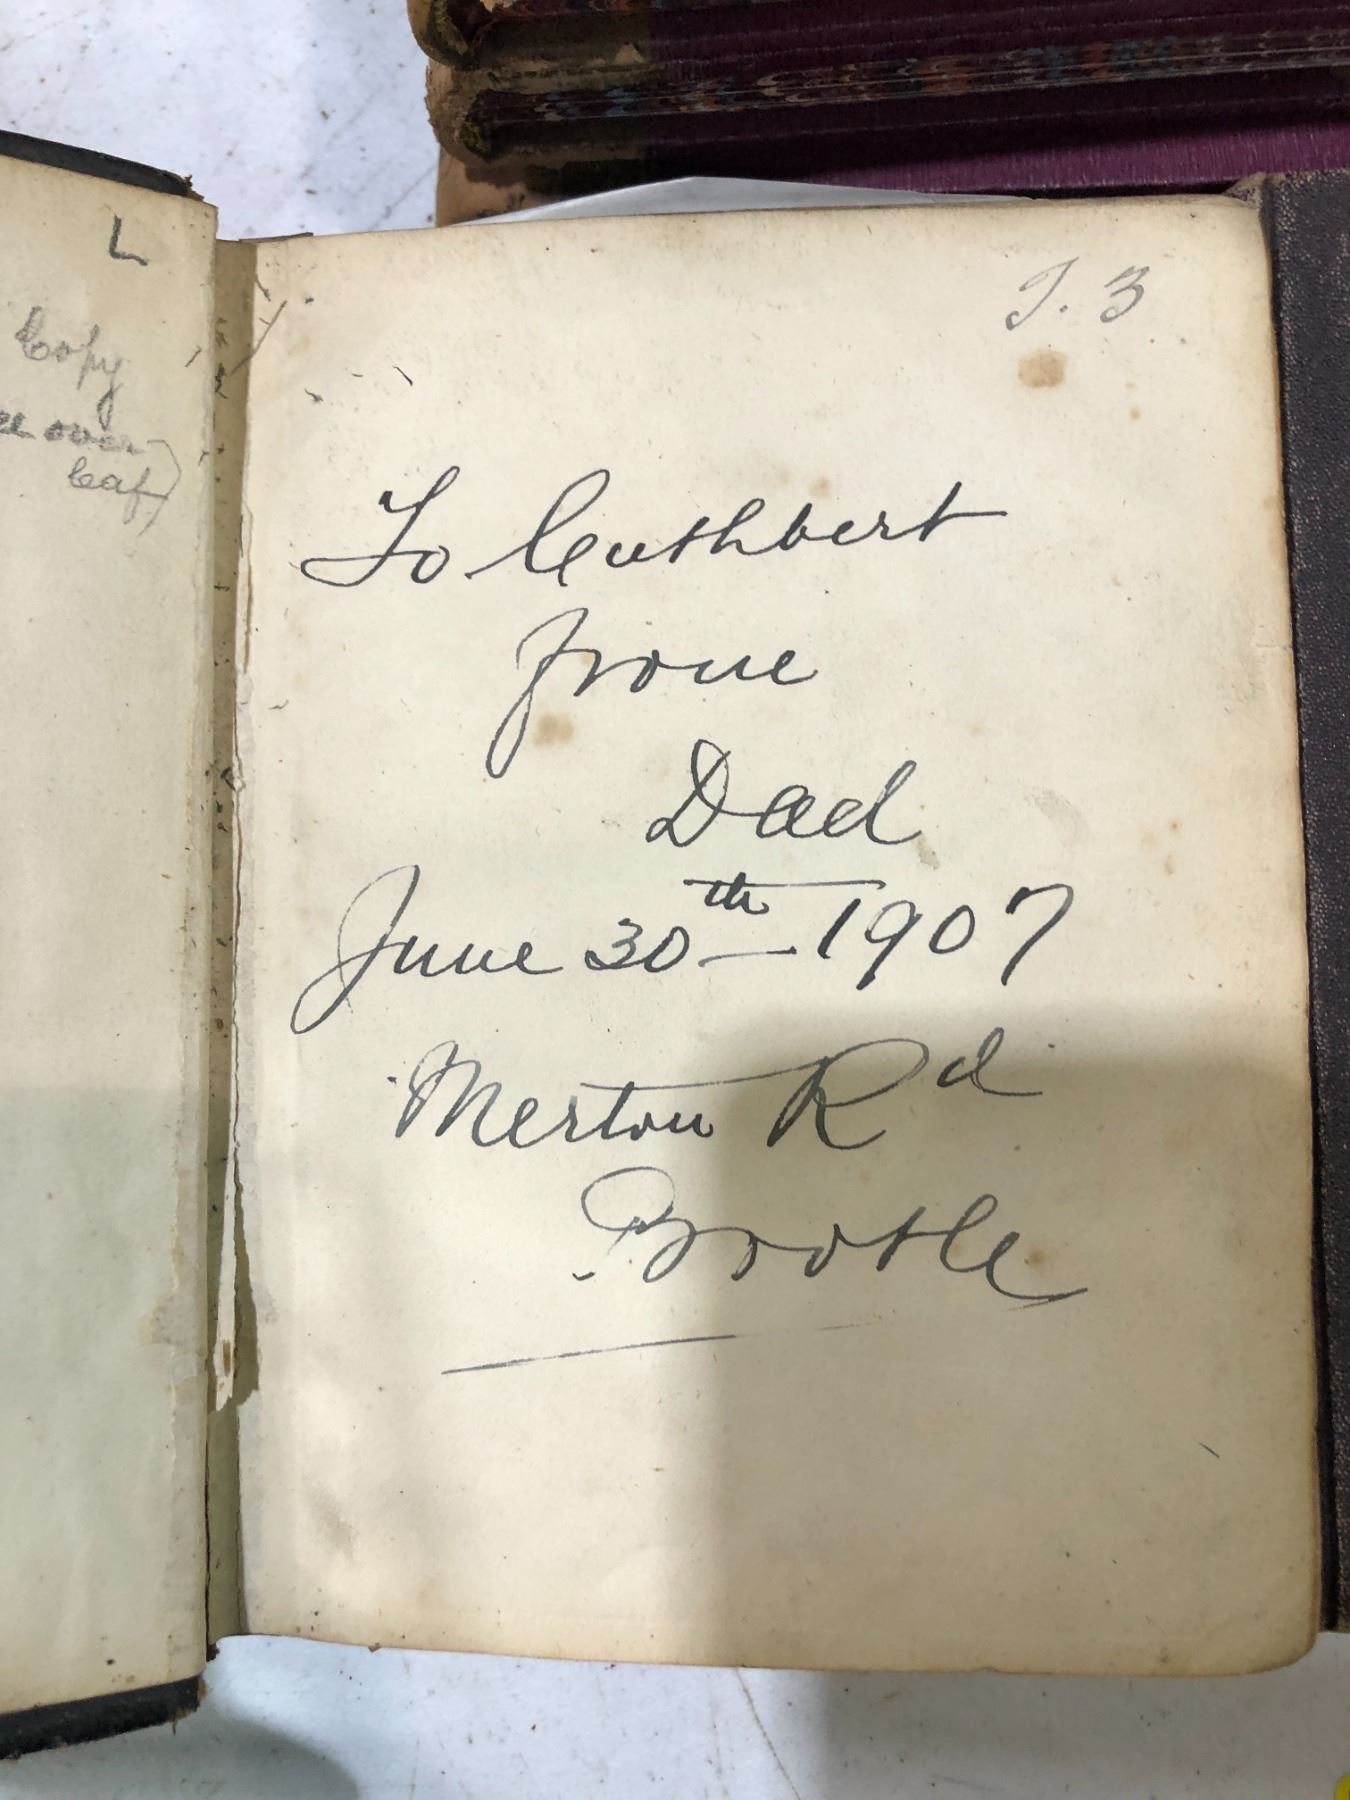 L
Copy
over
leaf)
J. 3
To Cuthbert
from
Dad
June 30th 1907
Merton Rd
Bootle